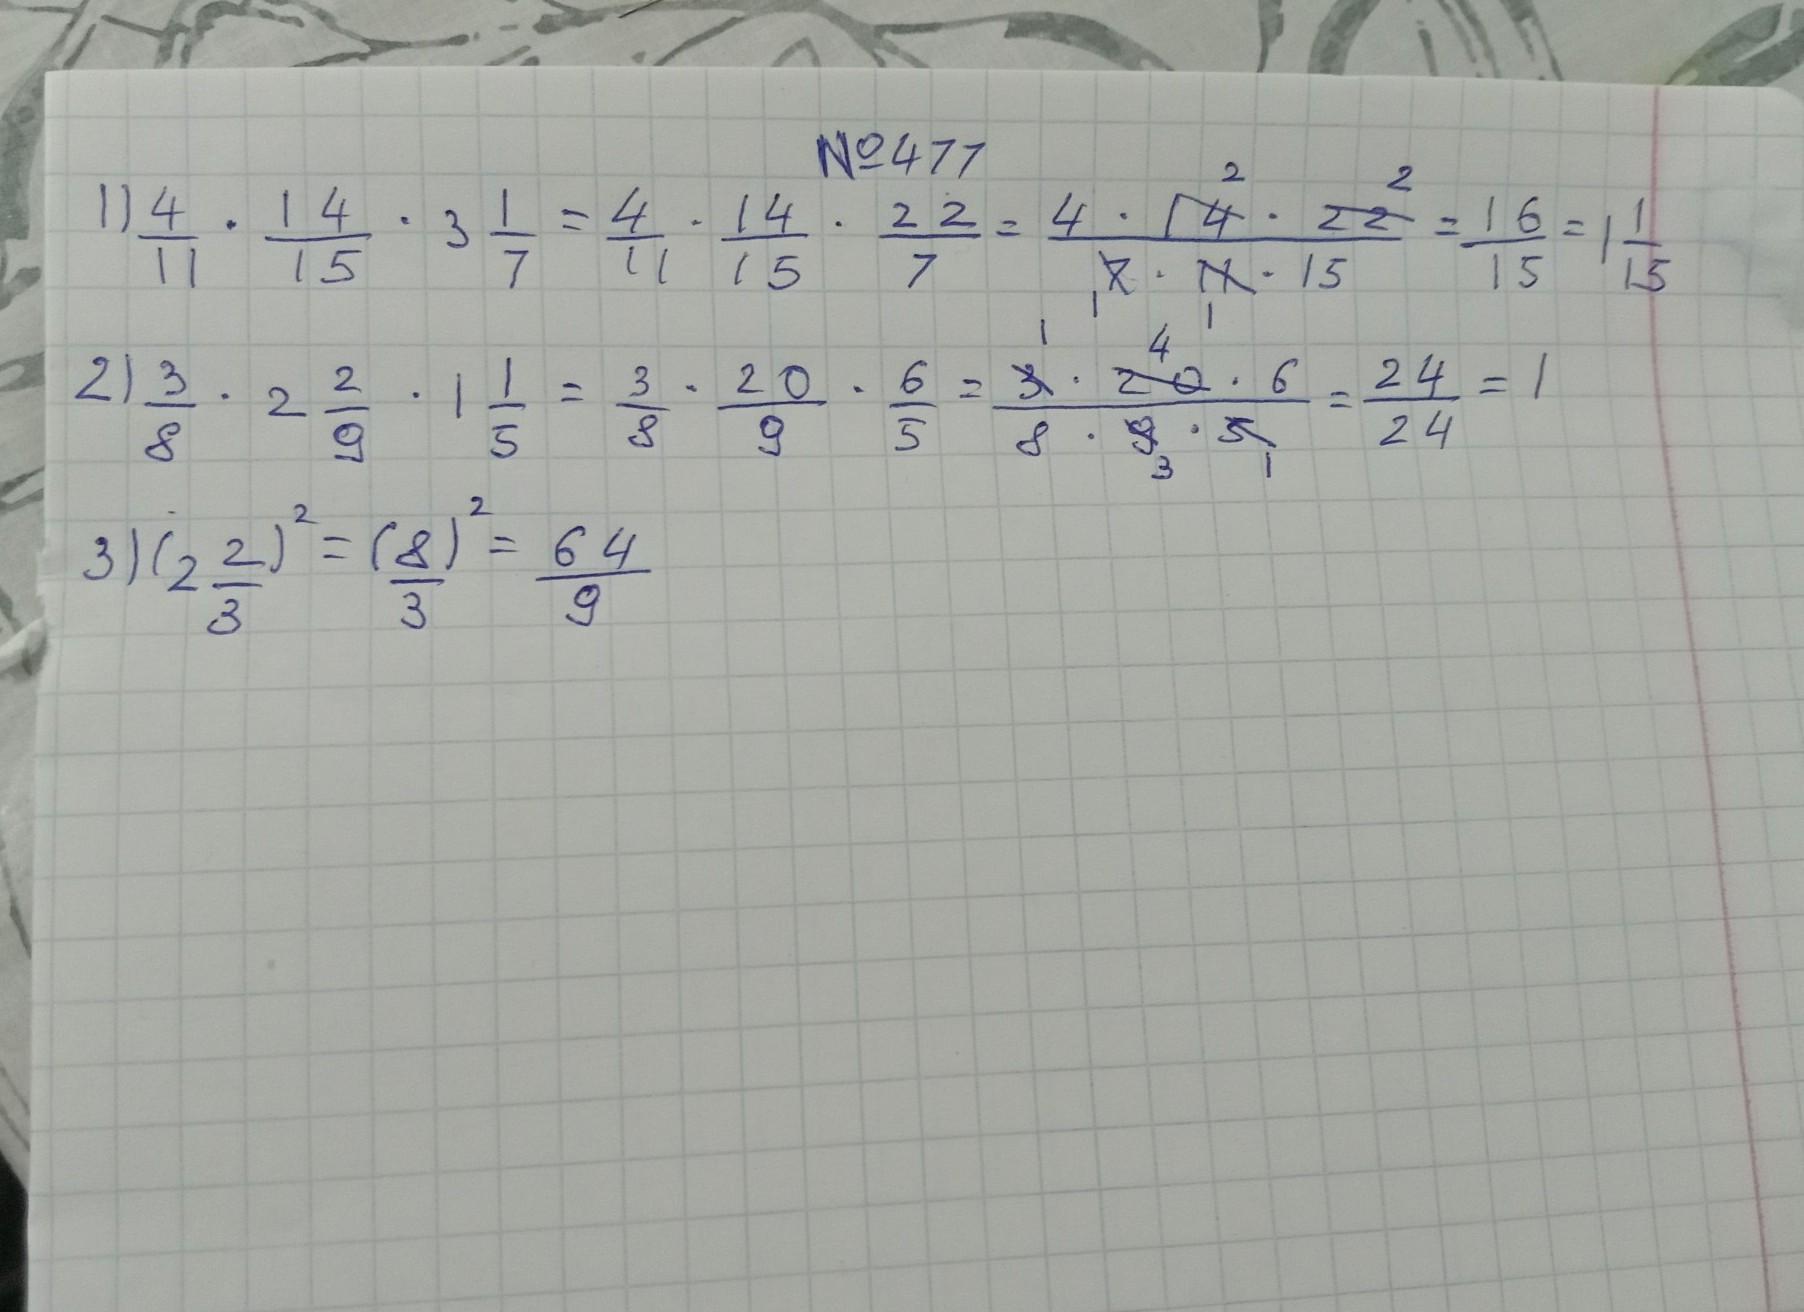 №477
1) 4/11 · 14/15 · 3 1/7 = 4/11 · 14/15 · 22/7 = 4 · 14 2 · 22 2 / 7 1 · 11 1 · 15 = 16/15 = 1 1/15
2) 3/8 · 2 2/9 · 1 1/5 = 3/8 · 20/9 · 6/5 = 3 1 · 20 4 · 6 / 8 · 9 3 · 5 1 = 24/24 = 1
3) (2 2/3)² = (8/3)² = 64/9